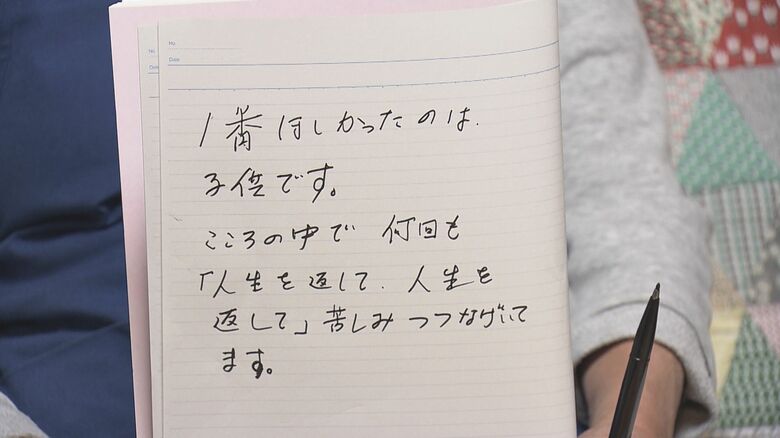 No.
Date
No.
Date
1番ほしかったのは.
子供です。
こころの中で 何回も
「人生を返して. 人生を
返して」苦しみつつなげいて
ます。